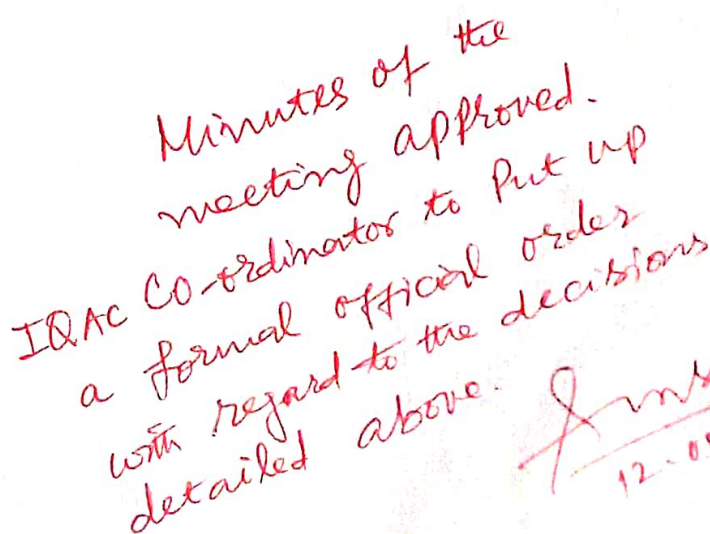 Minutes of the
meeting approved.
IQAC Co-ordinator to Put up
a formal official order
with regard to the decisions
detailed above.
12-0